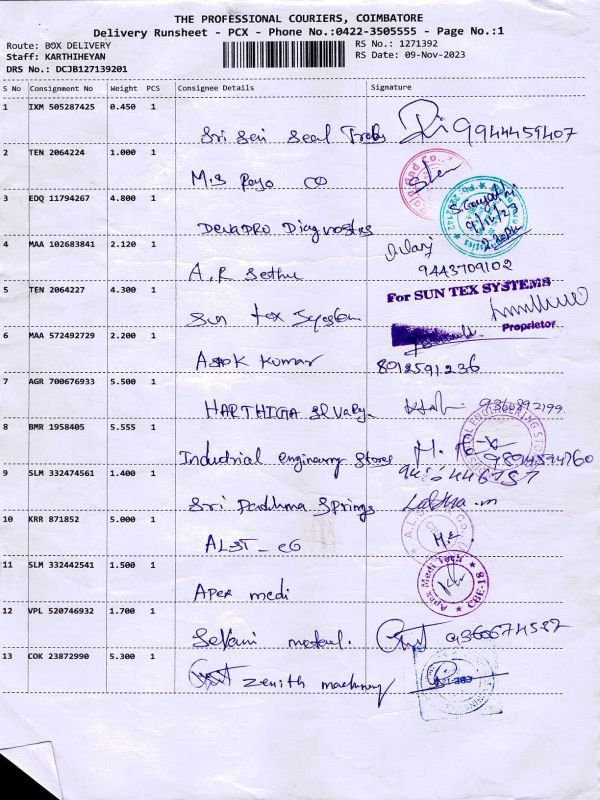 THE PROFESSIONAL COURIERS, COIMBATORE
Delivery Runsheet - PCX - Phone No.:0422-3505555 - Page No.:1
Route: BOX DELIVERY
RS No.: 1271392
Staff: KARTHIHEYAN
RS Date: 09-Nov-2023
DRS No.: DCJB127139201
S No Consignment No Weight PCS Consignee Details Signature
1 IXM 505287425 0.450 1
Sri Sai Seal Trads 9944459407
2 TEN 2064224 1.000 1
M.S Royo CO
3 EDQ 11794267 4.800 1
DEVAPRO Diagnostics
4 MAA 102683841 2.120 1
A.R Sethu 9443709102
5 TEN 2064227 4.300 1
For SUN TEX SYSTEMS
Sun tex System
Proprietor
6 MAA 572492729 2.200 1
Ashok Kumar 8012591236
7 AGR 700676933 5.500 1
HARTHIGA 9360892199
8 BMR 1958405 5.555 1
Industrial engineering Stores
9 SLM 332474561 1.400 1
Sri Padhma Springs
10 KRR 871852 5.000 1
ALST - CG
11 SLM 332442541 1.500 1
Apex medi
Apex Medi Tech CBE-18
12 VPL 520746932 1.700 1
Selvani medical.
13 COK 23872990 5.300 1
Zenith machinery